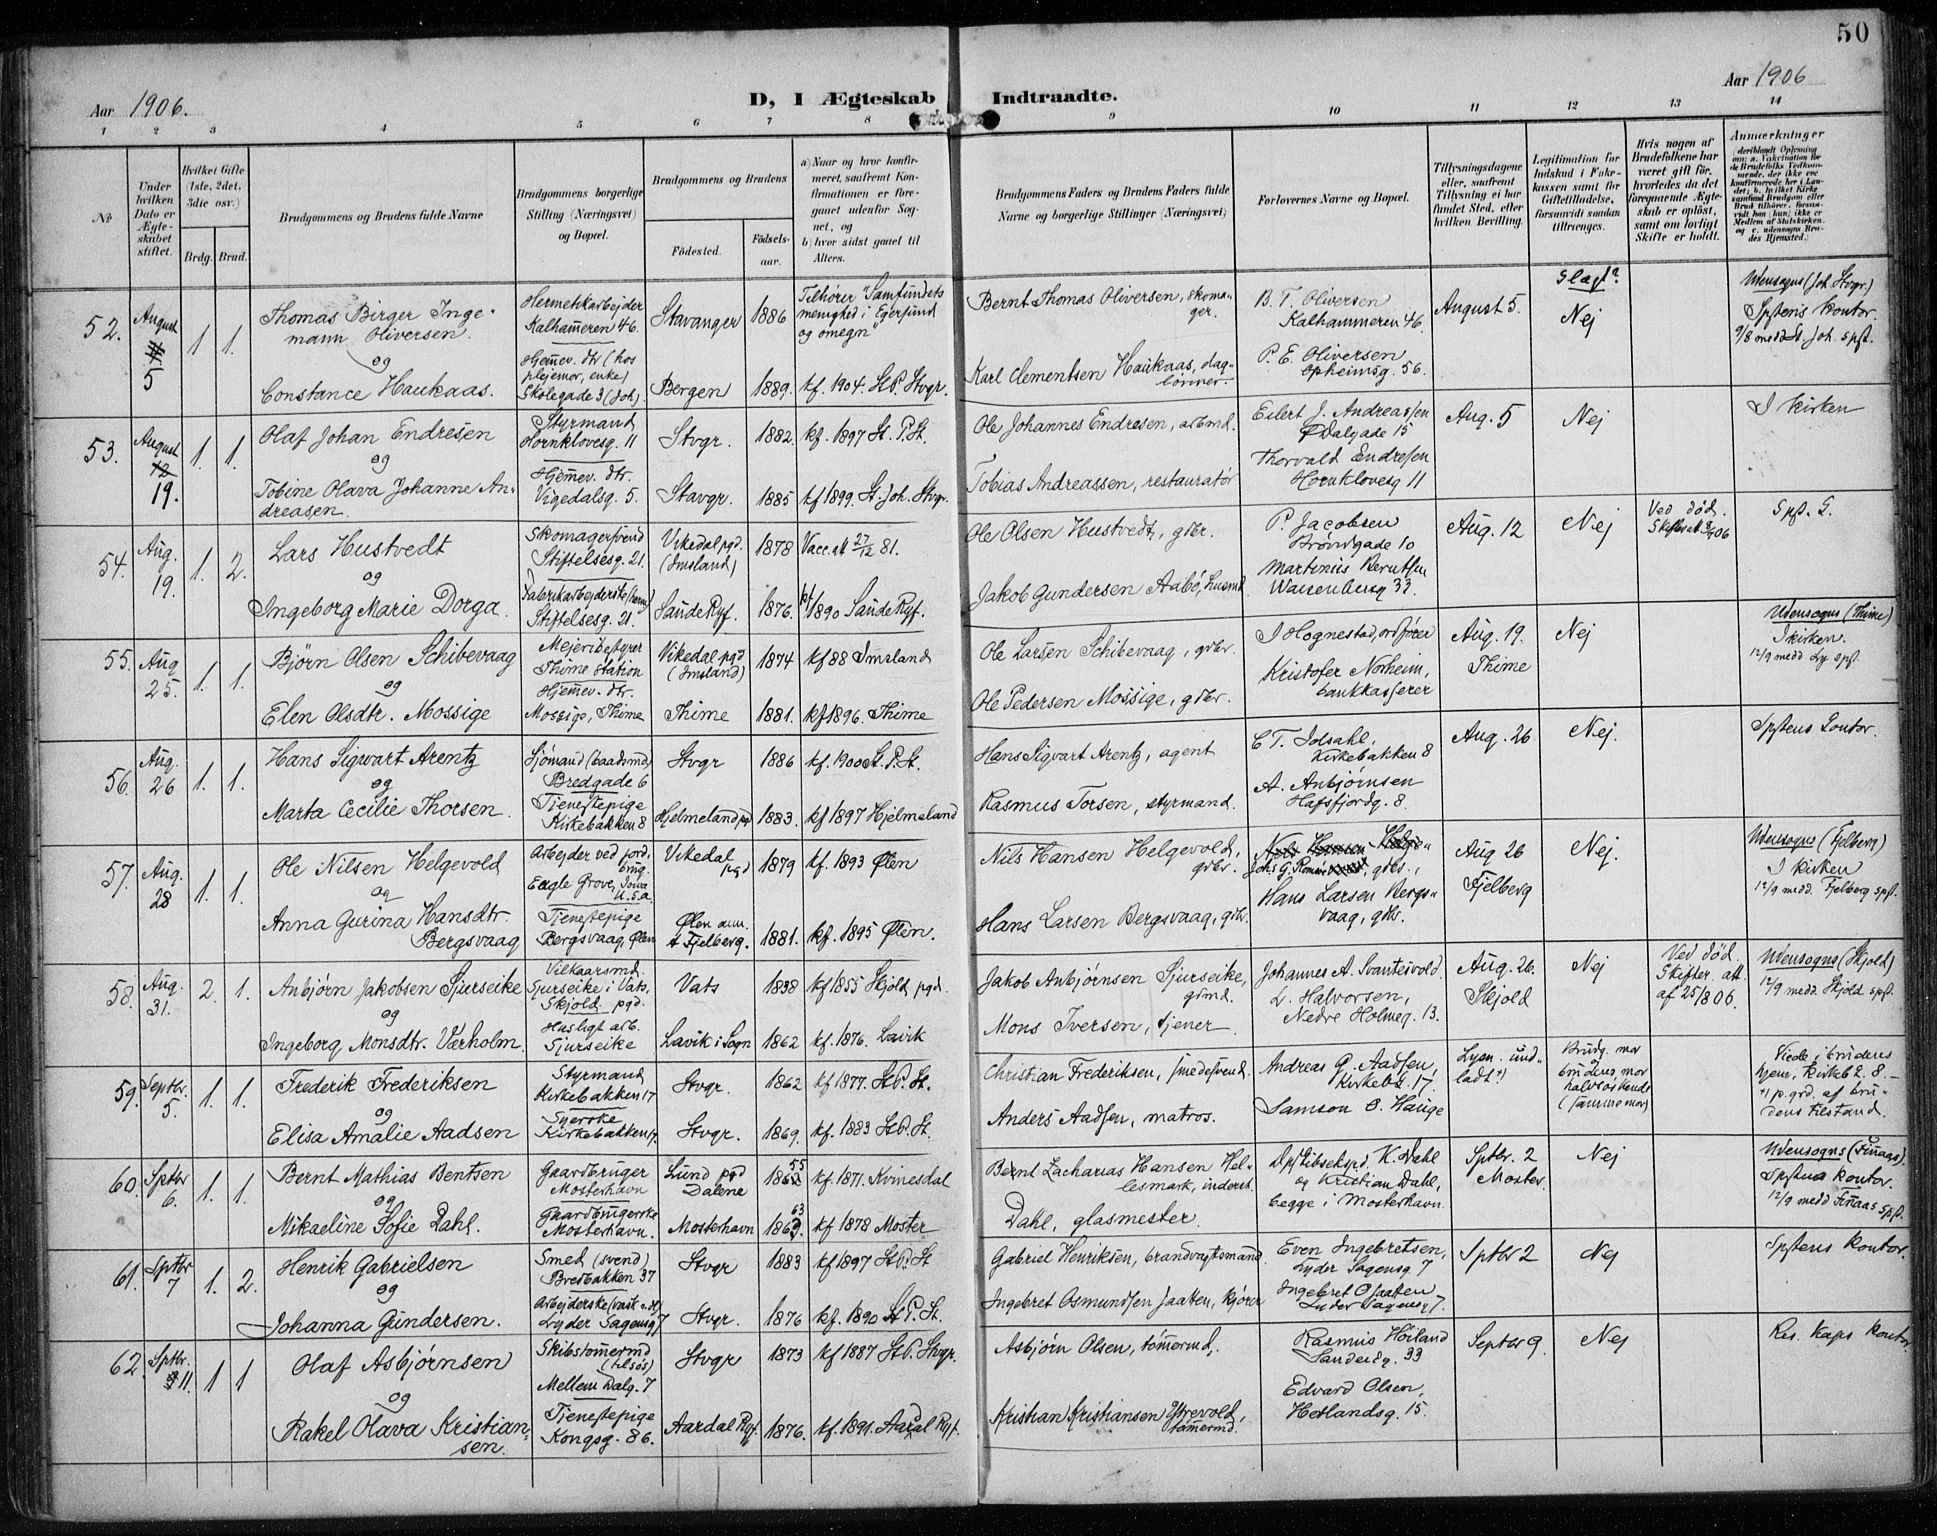 50
Aar 1906.
D, I Ægteskab Indtraadte.
Aar 1906
1 2 3 4 5 6 7 8 9 10 11 12 13 14
No
Under hvilken Dato er Ægteskabet stiftet.
Hvilket Gifte (1ste, 2det, 3die osv.)
Brdg. Brud.
Brudgommens og Brudens fulde Navne
Brudgommens borgerlige Stilling (Næringsvei) og Bopæl.
Brudgommens og Brudens
Födested.
Födsels-aar.
a) Naar og hvor konfirmeret, saafremt Konfirmationen er foregaaet udenfor Sognet, og
b) hvor sidst gaaet til Alters.
Brudgommens Faders og Brudens Faders fulde Navne og borgerlige Stillinger (Næringsvei)
Forlovernes Navne og Bopæl.
Tillysningsdagene eller, saafremt Tillysning ei har fundet Sted, efter hvilken Bevilling.
Legitimation for Indskud i Enkekassen samt for Giftetilladelse, forsaavidt saadan tiltrænges.
Hvis nogen af Brudefolkene har været gift før, hvorledes da det foregaaende Ægteskab er oplöst, samt om lovligt Skifte er holdt.
Anmærkninger
52.
August
5
1 1.
Thomas Birger Inge-
mann Oliversen.
og
Constance Haukaas.
Hermetikarbejder
Kalhammeren 46.
Hjemmev. dtr (hos
plejemor, enke)
Skolegade 3 (Joh).
Stavanger
Bergen
1886
1889.
Tilhører "Samfundets
menighed i Egersund
og omegn"
kf. 1904. St.P. Stvgr.
Bernt Thomas Oliversen, skoma-
ger.
Karl Clementsen Haukaas, dag-
lønner.
B. T. Oliversen
Kalhammeren 46.
P. E. Oliversen
Opheimsg. 56.
August 5.
Slægt?
Nej
Udensogns (Joh. Stvgr.)
Spstens kontor.
9/8 medd St. Joh. spst.
53.
August
12
19.
1. 1.
Olaf Johan Endresen
og
Tobine Olava Johanne An-
dreasen.
Styrmand
Hornklovesg. 11
Hjemmev. dtr.
Vigedalsg. 5.
Stvgr.
Stavgr.
1882.
1885
kf. 1897 St. P. St.
kf 1899. St. Joh. Stvgr.
Ole Johannes Endresen, arbmd.
Tobias Andreassen, restauratør
Eilert J. Andreassen
Ø Dalgade 15
Thorvald Endresen
Hornklovesg 11
Aug. 5
Nej
I kirken
54.
Aug.
19.
1. 2.
Lars Hustvedt
og
Ingeborg Marie Dorga.
Skomagersvend
Stiftelsesg. 21.
Stiftelsesg. 21.
Vikedal pgd.
(Imsland)
Saude Ryf.
1878
1876.
Vacc. att 27/12 81.
kf 1890 Saude Ryf.
Ole Olsen Hustvedt, gbr.
Jakob Gundersen Aabø, husmd.
P. Jacobsen
Brøndgade 10
Martinius Berntsen
Waisenhusg 33.
Aug. 12
Nej
Ved død.
Spst. G.
55.
Aug
25.
1. 1.
Bjørn Olsen Schibevaag
og
Elen Olsdtr. Mossige
Mejeribestyrer
Thime Station
Hjemmev. dtr.
Mossige, Thime
Vikedal pgd
(Imsland)
Thime
1874
1881.
kf 88 Imsland
kf 1896. Thime
Ole Larsen Schibevaag, gbr.
Ole Pedersen Mossige, gbr.
J Hognestad, ordfører
Kristofer Norheim,
bankkasserer
Aug. 19.
Thime
Nej
Udensogns (Thime)
I kirken.
12/9 medd Ly spst.
56.
Aug.
26
1. 1.
Hans Sigwart Arentz
og
Marta Cecilie Thorsen.
Sjømand (baadsmd)
Bredgade 6
Tjenestepige
Kirkebakken 8
Stvgr
Hjelmeland pgd
1886
1883.
kf. 1900 St. P. St.
kf 1897 Hjelmeland
Hans Sigvart Arentz, agent
Rasmus Torsen, styrmand.
C T. Idsahl,
Kirkebakken 8
A. Anbjørnsen
Hafsfjordg. 8.
Aug. 26
Nej.
Spstens Contor.
57.
Aug.
28
1. 1.
Ole Nilsen Helgevold
og
Anna Gurina Hansdtr.
Bergsvaag
Arbejder ved jord-
brug.
Eagle Grove, Iowa
U.S.A.
Tjenestepige
Bergsvaag, Ølen
Vikedal
pgd
Ølen ann.
t Fjelberg.
1879
1881.
kf. 1893 Ølen
kf. 1895 Ølen.
Nils Hansen Helgevold,
gbr.
Hans Larsen Bergsvaag, gbr.
Hans Larsen Bergs-
vaag, gbr.
Aug 26
Fjelberg
Nej.
Udensogns (Fjelberg)
I kirken
12/9 medd. Fjelberg spst.
58.
Aug.
31.
2. 1.
Anbjørn Jakobsen Sjurseike
og
Ingeborg Monsdtr. Værholm.
Vilkaarsmd.
Sjurseike i Vats,
Skjold pgd.
Husligt arb.
Sjurseike
Vats
Lavik i Sogn
1838
1862
kf 1855 Skjold pgd.
kf. 1876. Lavik
Jakob Anbjørnsen Sjurseike,
grmd.
Mons Iversen, tjener.
Johannes A. Svantesvold.
L. Halvorsen,
Nedre Holmeg. 13.
Aug. 26.
Skjold
Nej
Ved død.
Skifter. att
af 25/8 06.
Udensogns (Skjold)
12/9 medd. Skjold spst.
59.
Septbr.
5.
1. 1.
Frederik Frederiksen
og
Elisa Amalie Aadsen
Styrmand
Kirkebakken 17
Syerske
Kirkebakken 17.
Stvgr.
Stvgr.
1862
1869.
kf 1877. St.P. St.
kf. 1883 St.P. St.
Christian Frederiksen, smedesvend.
Anders Aadsen, matros.
Andreas G. Aadsen,
Kirkebk. 17.
Samson O. Hauge
Lysn. und-
ladt +)
Brudg. mor
brudens mor
halvsøskende
(samme mor)
Viede i brudens
hjem, kirkeb. 2. 8.
+) p. grd. af bru-
dens tilstand.
60.
Sptbr
6.
1. 1.
Bernt Mathias Bentsen
og
Mikaeline Sofie Dahl.
Gaardbruger
Mosterhavn
Gaardbrugerske
Mosterhavn.
Lund pgd
Dalene
Mosterhavn
55
63
kf. 1871. Kvinesdal
kf 1878 Moster
Bernt Zacharias Hansen Hel-
lesmark, inderst.
Dahl, glasmester.
K. Dahl
og Kristian Dahl,
begge i Mosterhavn.
Sptbr. 2
Moster.
Nej
Udensogns (Finaas).
Spstens kontor.
12/9 medd Finaas spst.
61.
Sptbr
7
1. 2.
Henrik Gabrielsen
og
Johanna Gundersen.
Smed (svend)
Bredbakken 37
Lyder Sagensg 7
Stvgr
Stvgr.
1883
1876
kf 1897 St.P. St
kf. 1890 St P. St.
Gabriel Henriksen, brandvagtsmand.
Ingebret Osmundsen Jaatten, kjører
Even Ingebretsen,
Lyder Sagensg. 7
Ingebret O Jaatten
Lyder Sagensg 7.
Sptbr 2
Nej
Spstens kontor.
62.
Sptbr.
11.
1 1
Olaf Asbjørnsen
og
Rakel Olava Kristian-
sen.
Skibstømmermd
(tilsøs)
Mellem Dalg. 7
Tjenestepige
Kongsg. 86.
Stvgr
Aardal Ryf.
1873
1876.
kf 1887 St.P. Stvgr.
kf. 1891. Aardal Ryf.
Asbjørn Olsen, tømmermd.
Kristian Kristiansen Ytrevold,
tømmermd.
Rasmus Høiland
Sandeidg. 33
Edvard Olsen,
Hetlandsg. 15.
Septbr 9.
Nej
Res. Kaps kontor.